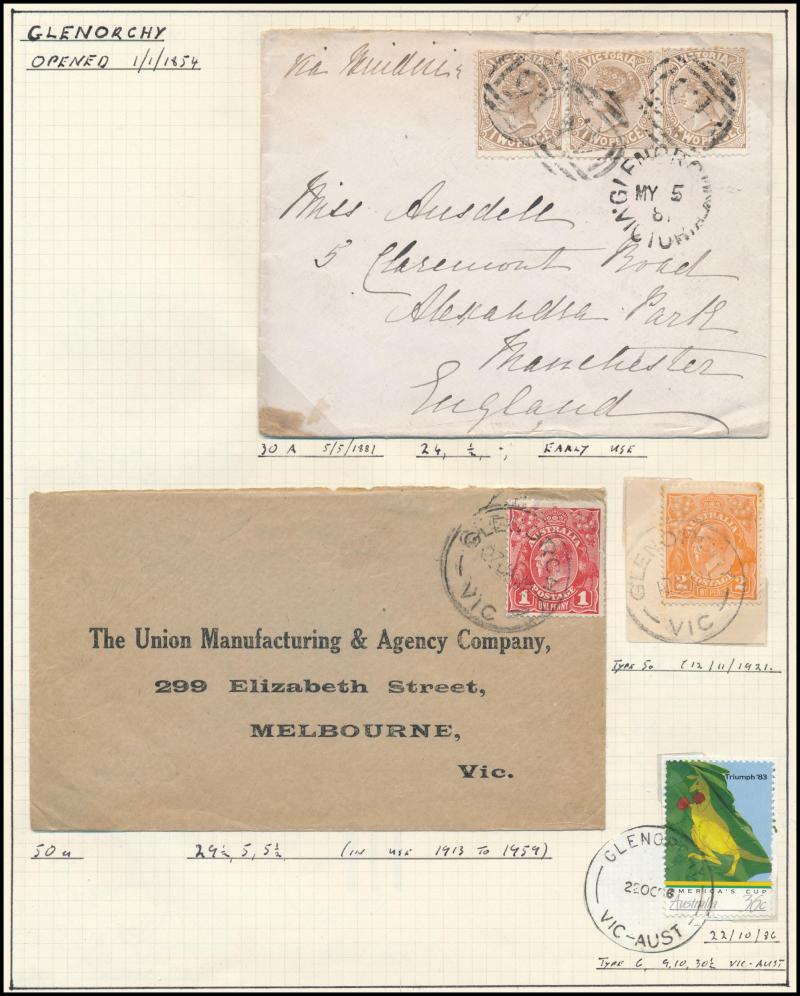 GLENORCHY
OPENED 1/1/1854
via Brindisi
VICTORIA VICTORIA VICTORIA
TWOPENCE TWOPENCE TWOPENCE
GLENORC
MY 5
81
VICTORIA
Miss Ansdell
5 Claremont Road
Alexandra Park
Manchester
England
30 A 5/5/1881 EARLY USE
GLENORC
VIC
AUSTRALIA
POSTAGE
1 1
ONE PENNY
The Union Manufacturing & Agency Company,
299 Elizabeth Street,
MELBOURNE,
Vic.
50u 29½, 5, 5½ (IN USE 1913 TO 1959)
GLENOR
VIC
AUSTRALIA
POSTAGE
2 2
TWO PENCE
TYPE 50 (12/11/1921.
Triumph '83
AMERICA'S CUP
Australia 36c
GLENO
22OC 6
VIC-AUST
22/10/86
TYPE 6, 9, 10, 30½ VIC-AUST